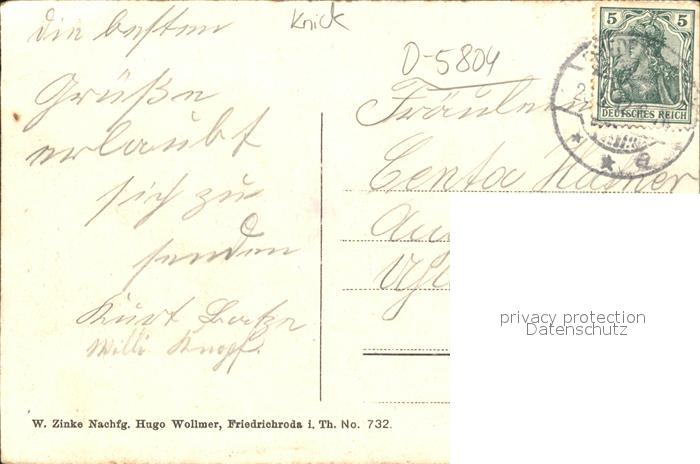 die besten
Grüße
erlaubt
sich zu
senden
Kurt
Willi Knopf.
Knick
D-5804
5 5
DEUTSCHES REICH
Fräulein
Centa
privacy protection
Datenschutz
W. Zinke Nachfg. Hugo Wollmer, Friedrichroda i. Th. No. 732.